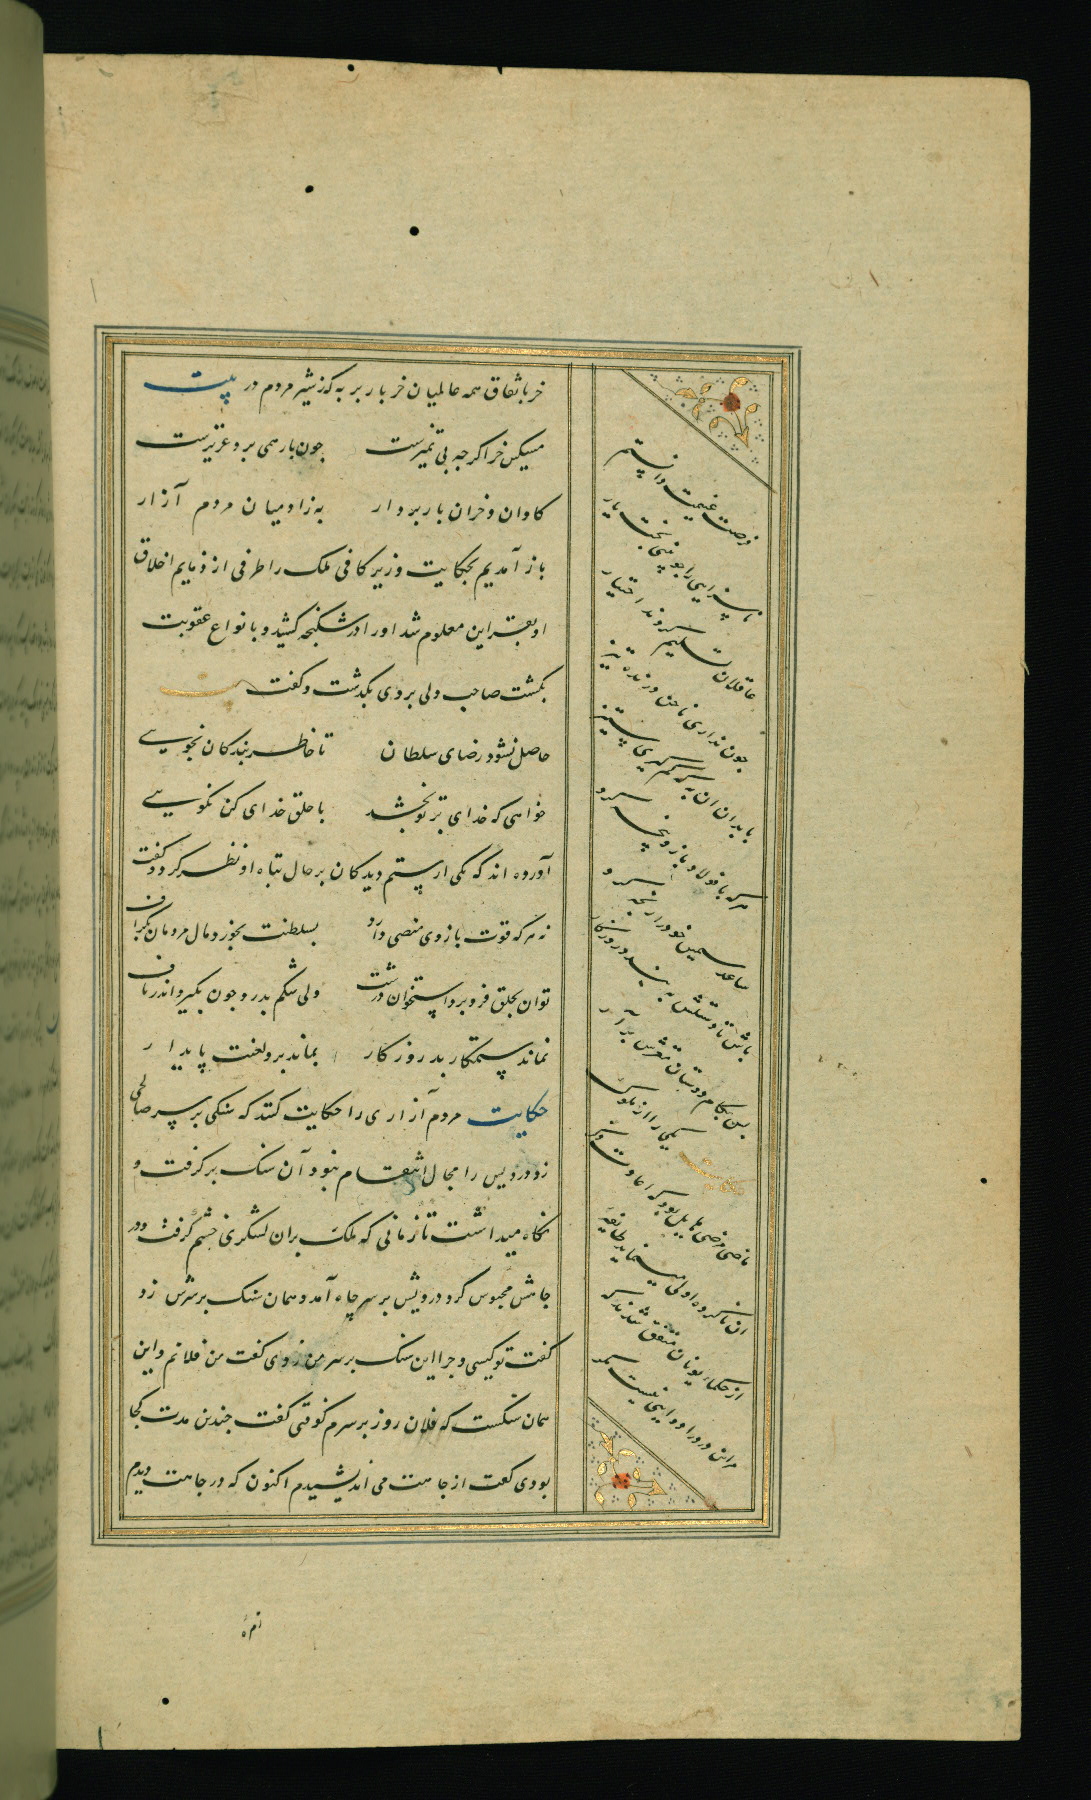 خر باتفاق همه عالمیان خر باربر به که شیر مردم در بیت
مسکین خر اگرچه بی تمیزست چون بار همی برد عزیزست
کاوان و خران باربردار به زادمیان مردم آزار
باز آمدیم بحکایت وزیر کافی ملک را طرفی از ذمایم اخلاق
او بقراین معلوم شد او را در شکنجه کشید و بانواع عقوبت
بکشت صاحب ولی بروی بگذشت و گفت
حاصل نشود رضای سلطان تا خاطر بندکان نجویی
خواهی که خدای بر تو بخشد با خلق خدای کن نکویی
آورده اند که یکی از ستم دیدکان بر حال تباه او نظر کرد و گفت
نه هر که قوت بازوی منصبی دارد بسلطنت بخورد مال مردمان بگزاف
توان بحلق فرو برد استخوان درشت ولی شکم بدرد چون بگیرد اندر ناف
نماند ستمکار بد روزکار بماند برو لعنت پایدار
حکایت مردم آزاری را حکایت کنند که سنکی بر سر صالحی
زد درویش را مجال انتقام نبود آن سنک بر کرفت و
نکاه میداشت تا زمانی که ملک بران لشگری خشم گرفت و در
چاهش محبوس کرد درویش بر سر چاه آمد و همان سنک بر سرش زد
گفت تو کیستی و چرا این سنک بر سر من زدی گفت من فلانم و این
همان سنکست که فلان روز بر سرم کوفتی گفت چندین مدت کجا
بودی گفت از جاهت می اندیشیدم اکنون که در چاهت دیدم
فرصت غنیمت دانستم
ناسزایی را چو بینی بخت یار
عاقلان تسلیم کردند اختیار
چون نداری ناخن درنده تیز
با بدان آن به که کم گیری ستیز
هر که با فولاد بازو پنجه کرد
ساعد سمین خود را رنجه کرد
باش تا دستش ببندد روزگار
پس بکام دوستان مغزش برآر
حکایت یکی را از ملوک
مرضی هایل بود که اعادت ذکر
آن ناکرده اولی طایفه
از حکماء یونان متفق شدند که
مراین درد را دوایی نیست مگر
زهره